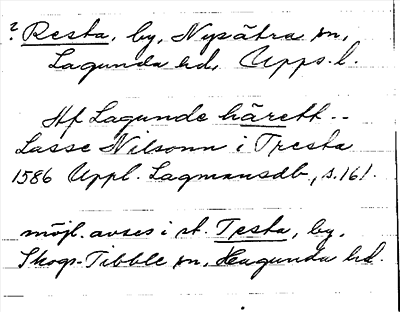 ? Resta, by, Nysätra sn,
Lagunda hd, Upps. l.
Af Lagunde härett --
Lasse Nilsonn i Tresta
1586 Uppl. Lagmansdb, s. 161.
möjl. avses i st. Testa, by,
Skogs-Tibble sn, Hagunda hd.